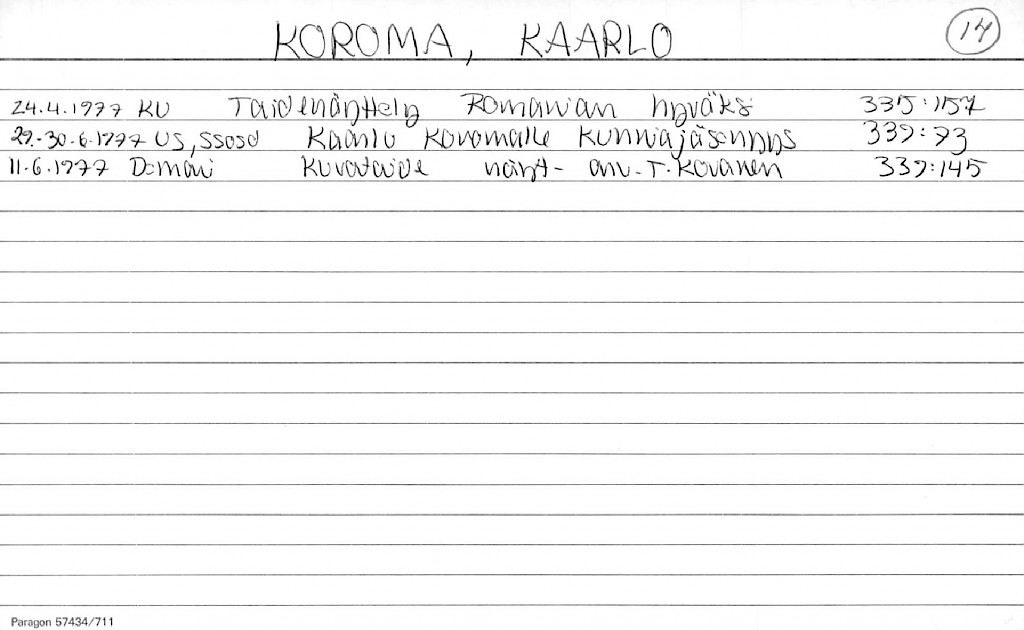 KOROMA, KAARLO 14
24.4.1977 KU Taidenäyttely Romanian hyväksi 335:157
29.-30.6.1977 US, SSosd Kaarlo Koromalle Kunniajäsenyys 339:93
11.6.1977 Demari Kuvataide näyt- arv. T. Kovanen 339:145
Paragon 57434/711